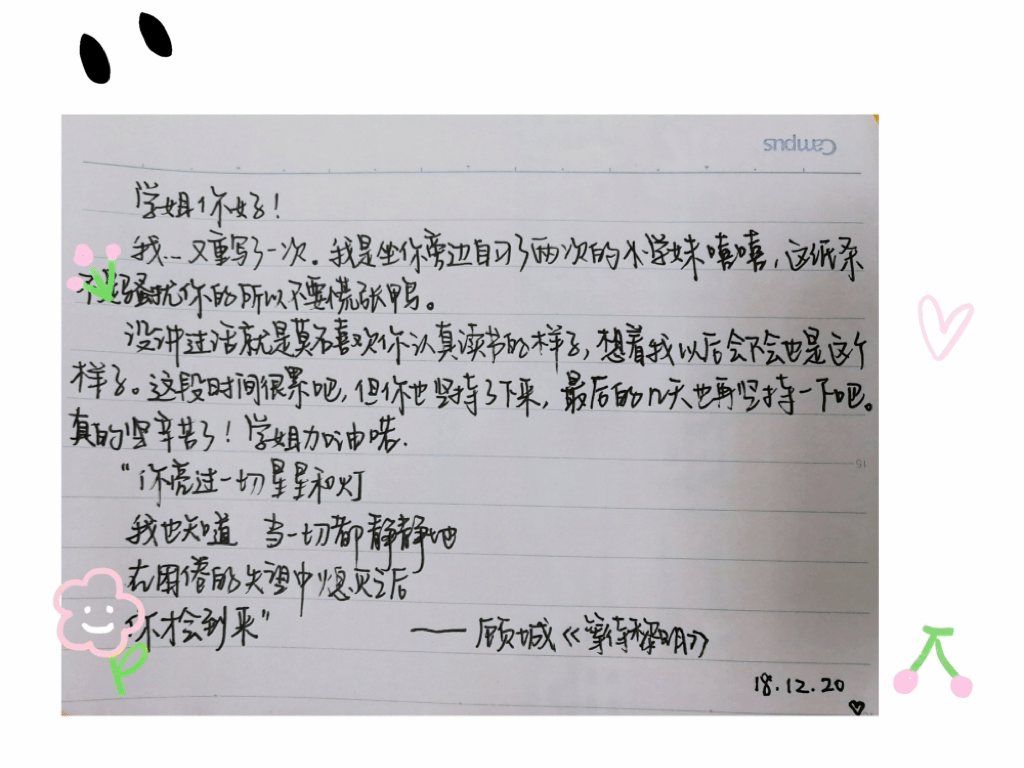 Campus
学姐你好!
我...又重写了一次。我是坐你旁边自习了两次的小学妹嘻嘻,这纸条
不是骚扰你的所以不要慌张鸭。
没讲过话就是莫名喜欢你认真读书的样子,想着我以后会不会也是这个
样子。这段时间很累吧,但你也坚持了下来,最后的几天也再坚持一下吧。
真的坚辛苦了!学姐加油喏.
“你亮过一切星星和灯
我也知道 当一切都静静地
在困倦的失望中熄灭之后
你才会到来”
——顾城《等待黎明》
18.12.20
15